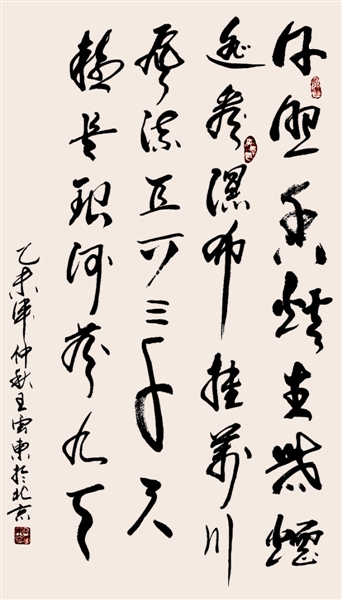 日照香爐生紫煙
遥看瀑布挂前川
飛流直下三千尺
疑是銀河落九天
乙未年仲秋王雲東於北京